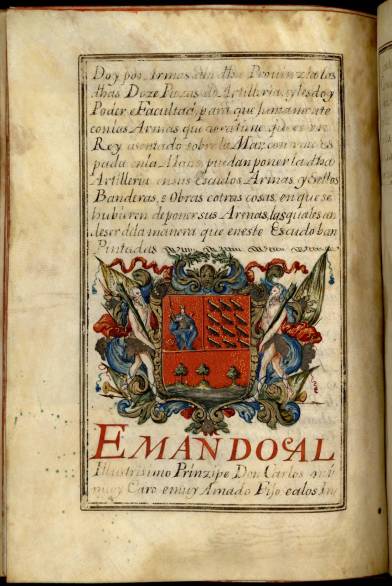 Doy por Armas ala dha Provinzia las
dhas Doze Piezas de Artilleria, y les doy
Poder e Facultad, para que juntamente
con las Armas que aora tiene que es un
Rey asentado sobre la Mar, con una es
pada en la Mano, puedan poner la dha
Artilleria en sus Escudos Armas, y Sellos
Banderas, e Obras e otras cosas, en que se
hubieren de poner sus Armas, las quales an
de ser de la manera que en este Escudo ban
Pintadas
EMANDO AL
Illustrisimo Prinzipe Don Carlos mi
muy Caro e muy Amado Fijo e a los In